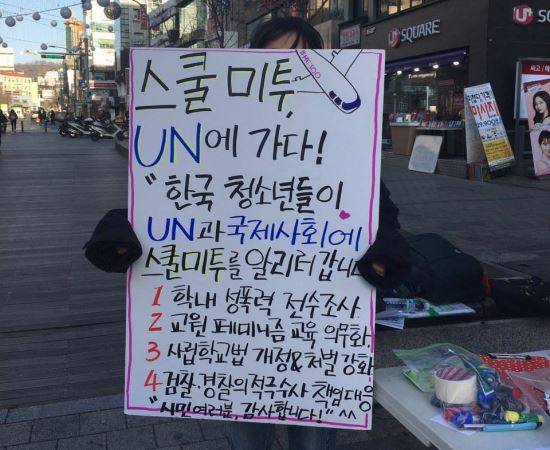 #ME TOO
스쿨 미투,
UN에 가다!
"한국 청소년들이
UN과 국제사회에
스쿨미투를 알리러 갑니다
1 학내 성폭력 전수조사
2 교원 페미니즘 교육 의무화.
3 사립학교법 개정&처벌 강화
4 검찰·경찰의 적극수사 책임대응
"시민여러분, 감사합니다!" ^^
U+ SQUARE
U+